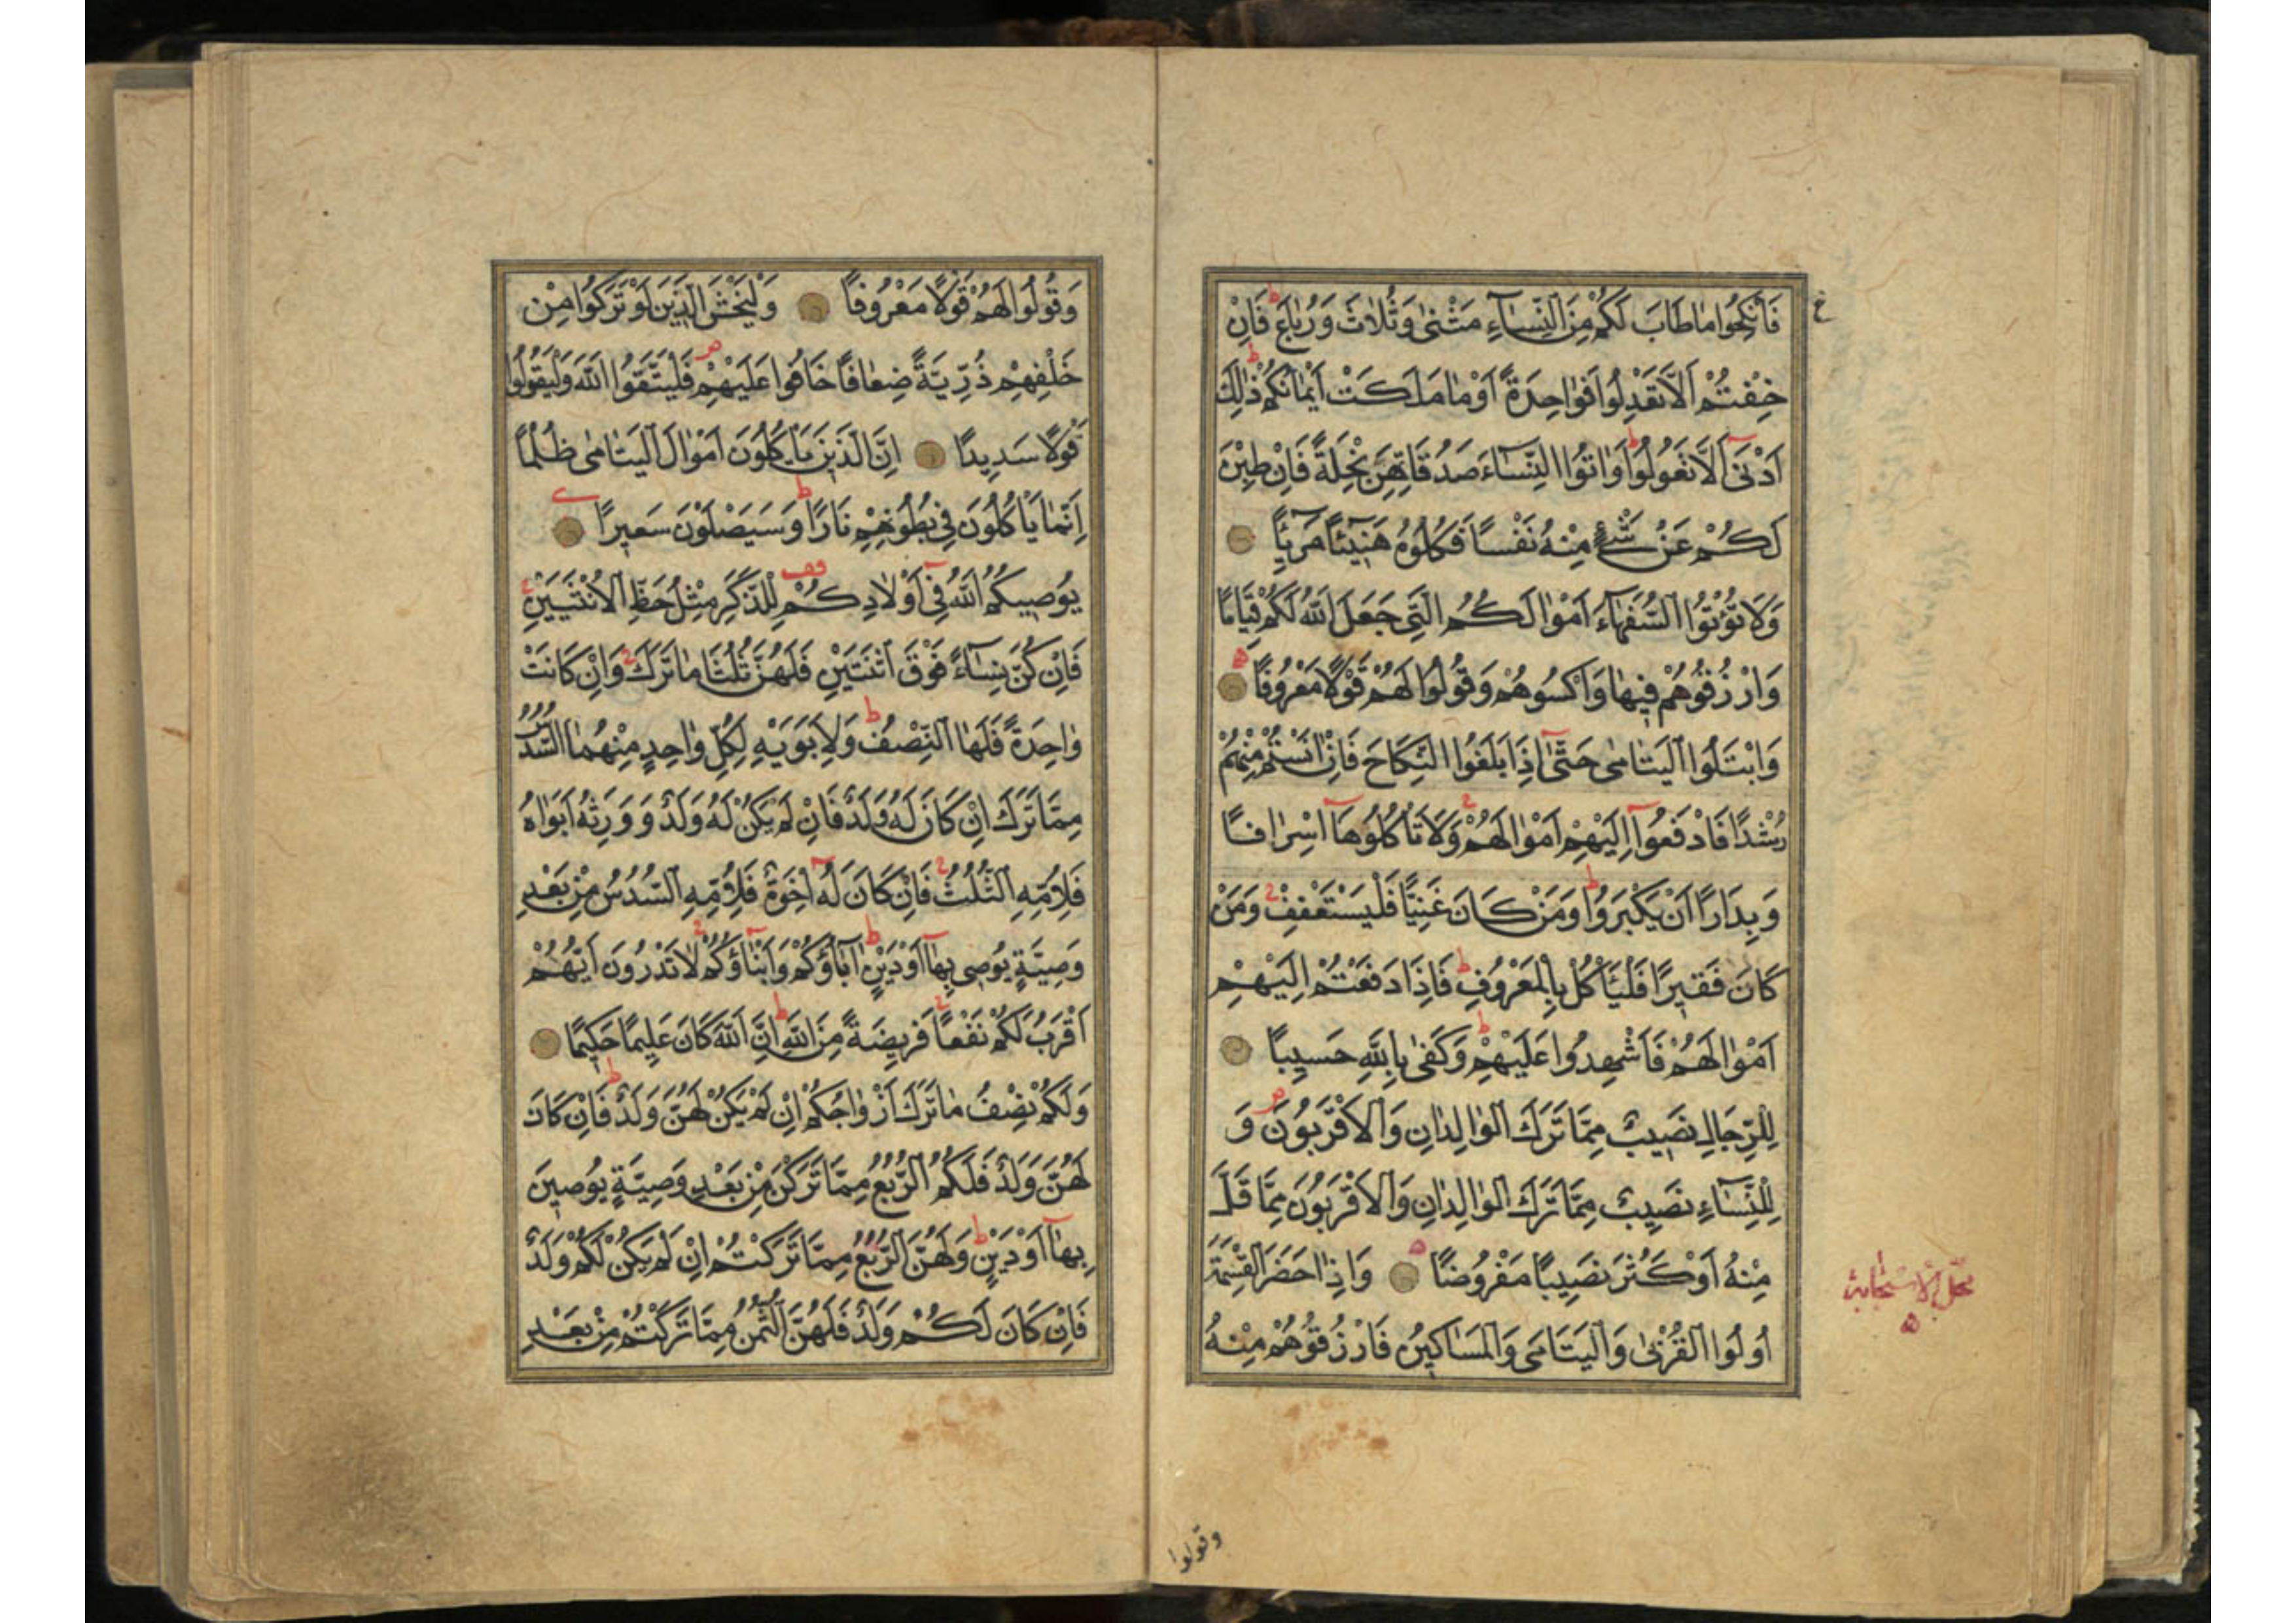 فَانْكِحُوا مٰا طَابَ لَكُمْ مِنَ النِّسٰٓاءِ مَثْنٰى وَثُلٰاثَ وَرُبٰاعَ ط فَاِنْ
خِفْتُمْ اَلَّا تَعْدِلُوا فَوٰاحِدَةً اَوْ مٰا مَلَكَتْ اَيْمٰانُكُمْ ط ذٰلِكَ
اَدْنٰى اَلَّا تَعُولُوا ط وَاٰتُوا النِّسٰٓاءَ صَدُقَاتِهِنَّ نِحْلَةً فَاِنْ طِبْنَ
لَكُمْ عَنْ شَيْءٍ مِنْهُ نَفْسًا فَكُلُوهُ هَنِيٓئًا مَرِيٓئًا
وَلَا تُؤْتُوا السُّفَهٰٓاءَ اَمْوٰالَكُمُ الَّتِي جَعَلَ اللّٰهُ لَكُمْ قِيَامًا
وَارْزُقُوهُمْ فِيهٰا وَاكْسُوهُمْ وَقُولُوا لَهُمْ قَوْلًا مَعْرُوفًا ه
وَابْتَلُوا الْيَتَامٰى حَتّٰىٓ اِذَا بَلَغُوا النِّكَاحَ فَاِنْ اٰنَسْتُمْ مِنْهُمْ
رُشْدًا فَادْفَعُوٓا اِلَيْهِمْ اَمْوٰالَهُمْ ج وَلَا تَأْكُلُوهَآ اِسْرٰافًا
وَبِدَارًا اَنْ يَكْبَرُوا ط وَمَنْ كَانَ غَنِيًّا فَلْيَسْتَعْفِفْ ج وَمَنْ
كَانَ فَقِيرًا فَلْيَأْكُلْ بِالْمَعْرُوفِ ط فَاِذَا دَفَعْتُمْ اِلَيْهِمْ
اَمْوٰالَهُمْ فَاَشْهِدُوا عَلَيْهِمْ ط وَكَفٰى بِاللّٰهِ حَسِيبًا
لِلرِّجَالِ نَصِيبٌ مِمَّا تَرَكَ الْوٰالِدٰانِ وَالْاَقْرَبُونَ ص وَ
لِلنِّسٰٓاءِ نَصِيبٌ مِمَّا تَرَكَ الْوٰالِدٰانِ وَالْاَقْرَبُونَ مِمَّا قَلَّ
مِنْهُ اَوْ كَثُرَ نَصِيبًا مَفْرُوضًا ه وَاِذَا حَضَرَ الْقِسْمَةَ
اُولُوا الْقُرْبٰى وَالْيَتَامٰى وَالْمَسَاكِينُ فَارْزُقُوهُمْ مِنْهُ
وقولوا
وَقُولُوا لَهُمْ قَوْلًا مَعْرُوفًا وَلْيَخْشَ الَّذِينَ لَوْ تَرَكُوا مِنْ
خَلْفِهِمْ ذُرِّيَّةً ضِعٰافًا خَافُوا عَلَيْهِمْ ص فَلْيَتَّقُوا اللّٰهَ وَلْيَقُولُوا
قَوْلًا سَدِيدًا اِنَّ الَّذِينَ يَأْكُلُونَ اَمْوٰالَ الْيَتَامٰى ظُلْمًا
اِنَّمٰا يَأْكُلُونَ فِي بُطُونِهِمْ نَارًا ط وَسَيَصْلَوْنَ سَعِيرًا
يُوصِيكُمُ اللّٰهُ فِيٓ اَوْلٰادِكُمْ قف لِلذَّكَرِ مِثْلُ حَظِّ الْاُنْثَيَيْنِ ج
فَاِنْ كُنَّ نِسٰٓاءً فَوْقَ اثْنَتَيْنِ فَلَهُنَّ ثُلُثَا مٰا تَرَكَ ج وَاِنْ كَانَتْ
وٰاحِدَةً فَلَهَا النِّصْفُ ط وَلِاَبَوَيْهِ لِكُلِّ وٰاحِدٍ مِنْهُمَا السُّدُسُ
مِمَّا تَرَكَ اِنْ كَانَ لَهُ وَلَدٌ فَاِنْ لَمْ يَكُنْ لَهُ وَلَدٌ وَوَرِثَهُ اَبَوٰاهُ
فَلِاُمِّهِ الثُّلُثُ ج فَاِنْ كَانَ لَهُٓ اِخْوَةٌ فَلِاُمِّهِ السُّدُسُ مِنْ بَعْدِ
وَصِيَّةٍ يُوصِي بِهٰٓا اَوْ دَيْنٍ ط اٰبَآؤُكُمْ وَاَبْنَآؤُكُمْ ج لٰا تَدْرُونَ اَيُّهُمْ
اَقْرَبُ لَكُمْ نَفْعًا ج فَرِيضَةً مِنَ اللّٰهِ ط اِنَّ اللّٰهَ كَانَ عَلِيمًا حَكِيمًا
وَلَكُمْ نِصْفُ مٰا تَرَكَ اَزْوٰاجُكُمْ اِنْ لَمْ يَكُنْ لَهُنَّ وَلَدٌ ط فَاِنْ كَانَ
لَهُنَّ وَلَدٌ فَلَكُمُ الرُّبُعُ مِمَّا تَرَكْنَ مِنْ بَعْدِ وَصِيَّةٍ يُوصِينَ
بِهٰٓا اَوْ دَيْنٍ ط وَلَهُنَّ الرُّبُعُ مِمَّا تَرَكْتُمْ اِنْ لَمْ يَكُنْ لَكُمْ وَلَدٌ
فَاِنْ كَانَ لَكُمْ وَلَدٌ فَلَهُنَّ الثُّمُنُ مِمَّا تَرَكْتُمْ مِنْ بَعْدِ